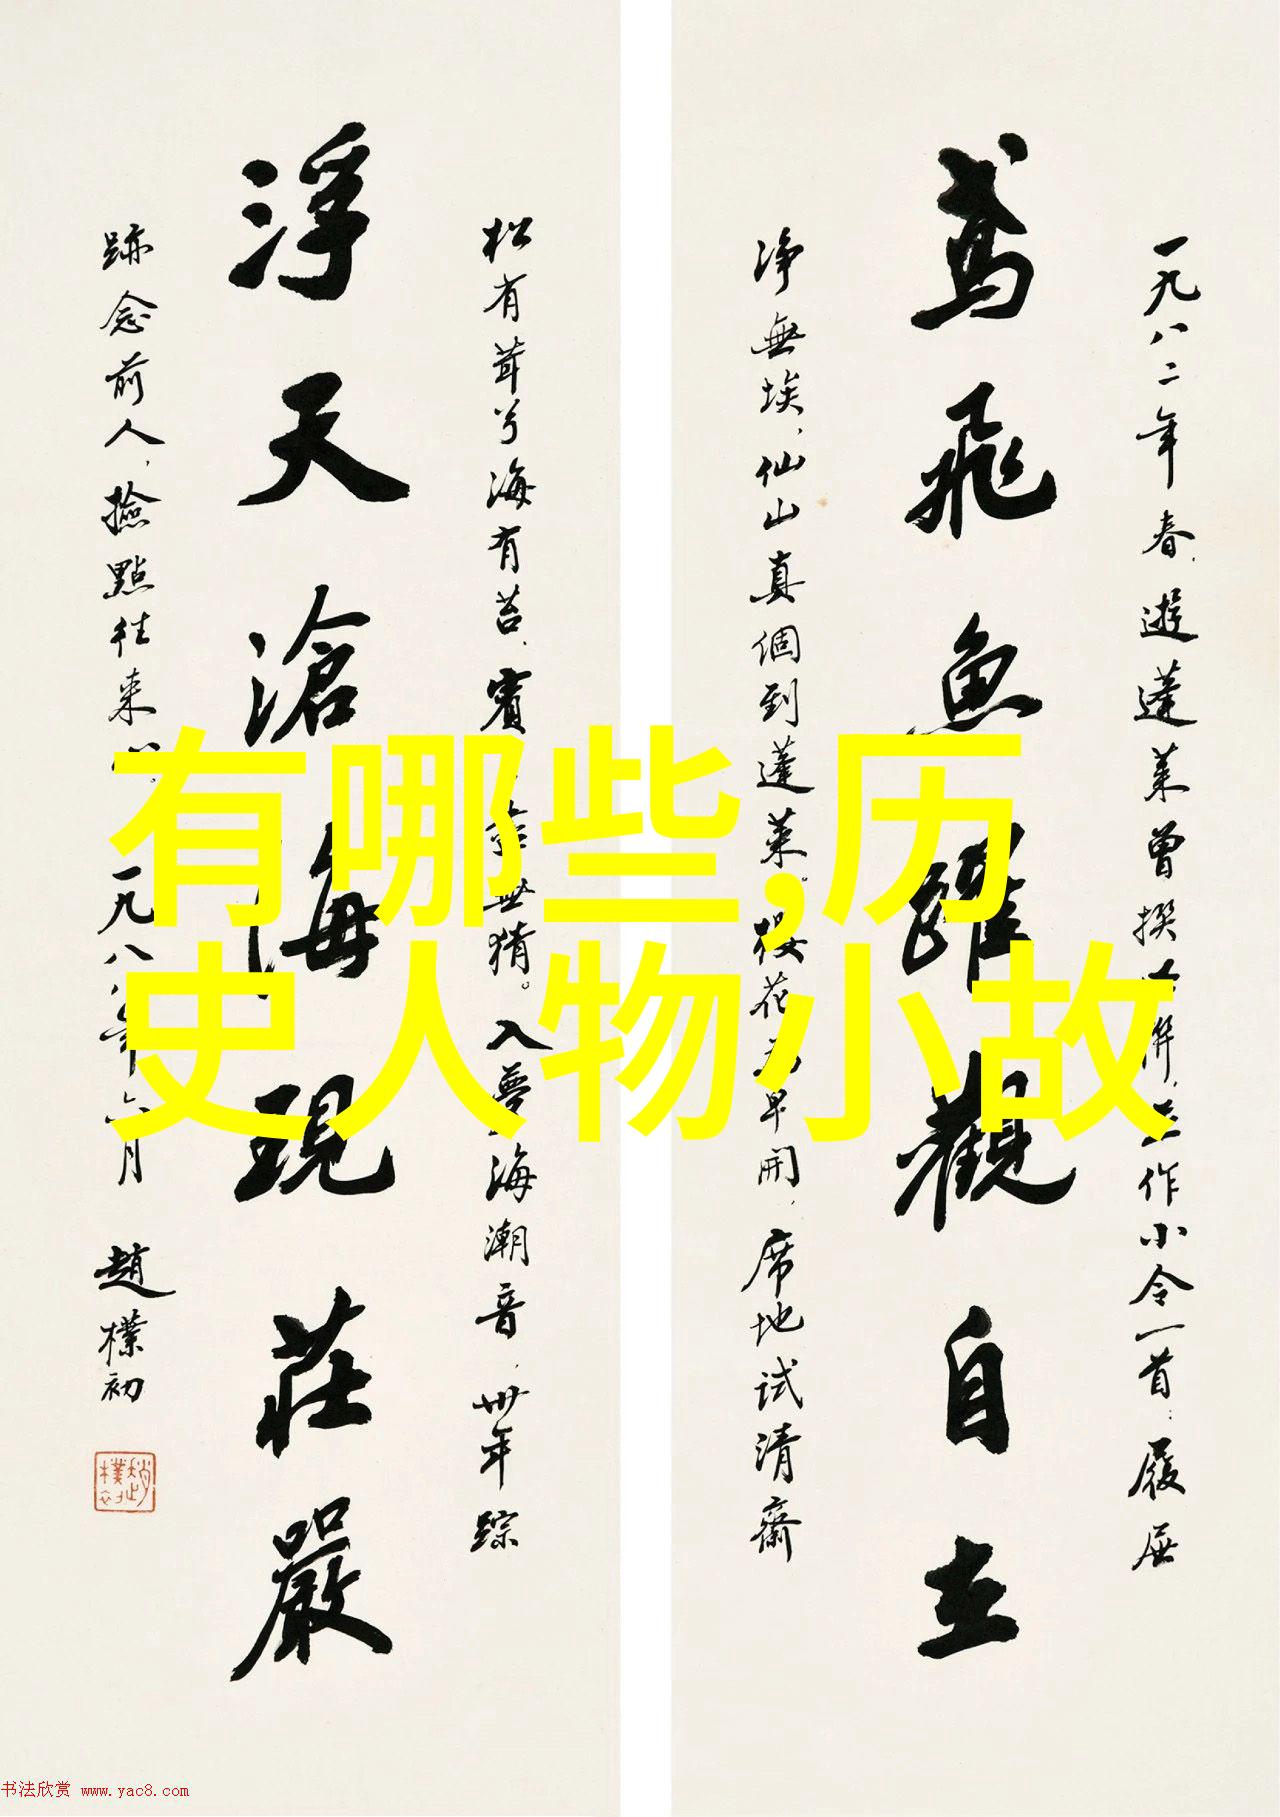 一九八二年春，遊蓬莱曾撰
作小令一首：履屐
鳶飛魚躍觀自在
净無埃，仙山真個到蓬莱。櫻花
早開，席地試清齋
松有茸兮海有苔，賓
無猜。入夢
海潮音，卅年踪
浮天滄海現莊嚴
跡念前人，撿點往来
一九八
年六月 趙樸初
趙樸初
有哪些,历
史人物小故
书法欣赏 www.yac8.com